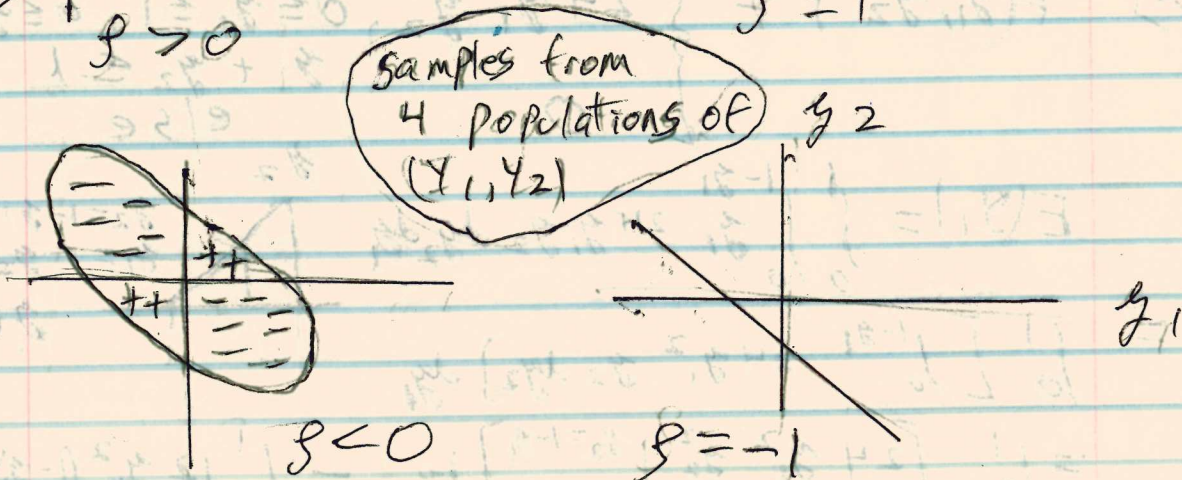 ρ > 0
samples from
4 populations of
(Y₁, Y₂)
y₂
− −
− −
− −
+ +
+ +
− −
− −
− −
y₁
ρ < 0
ρ = −1